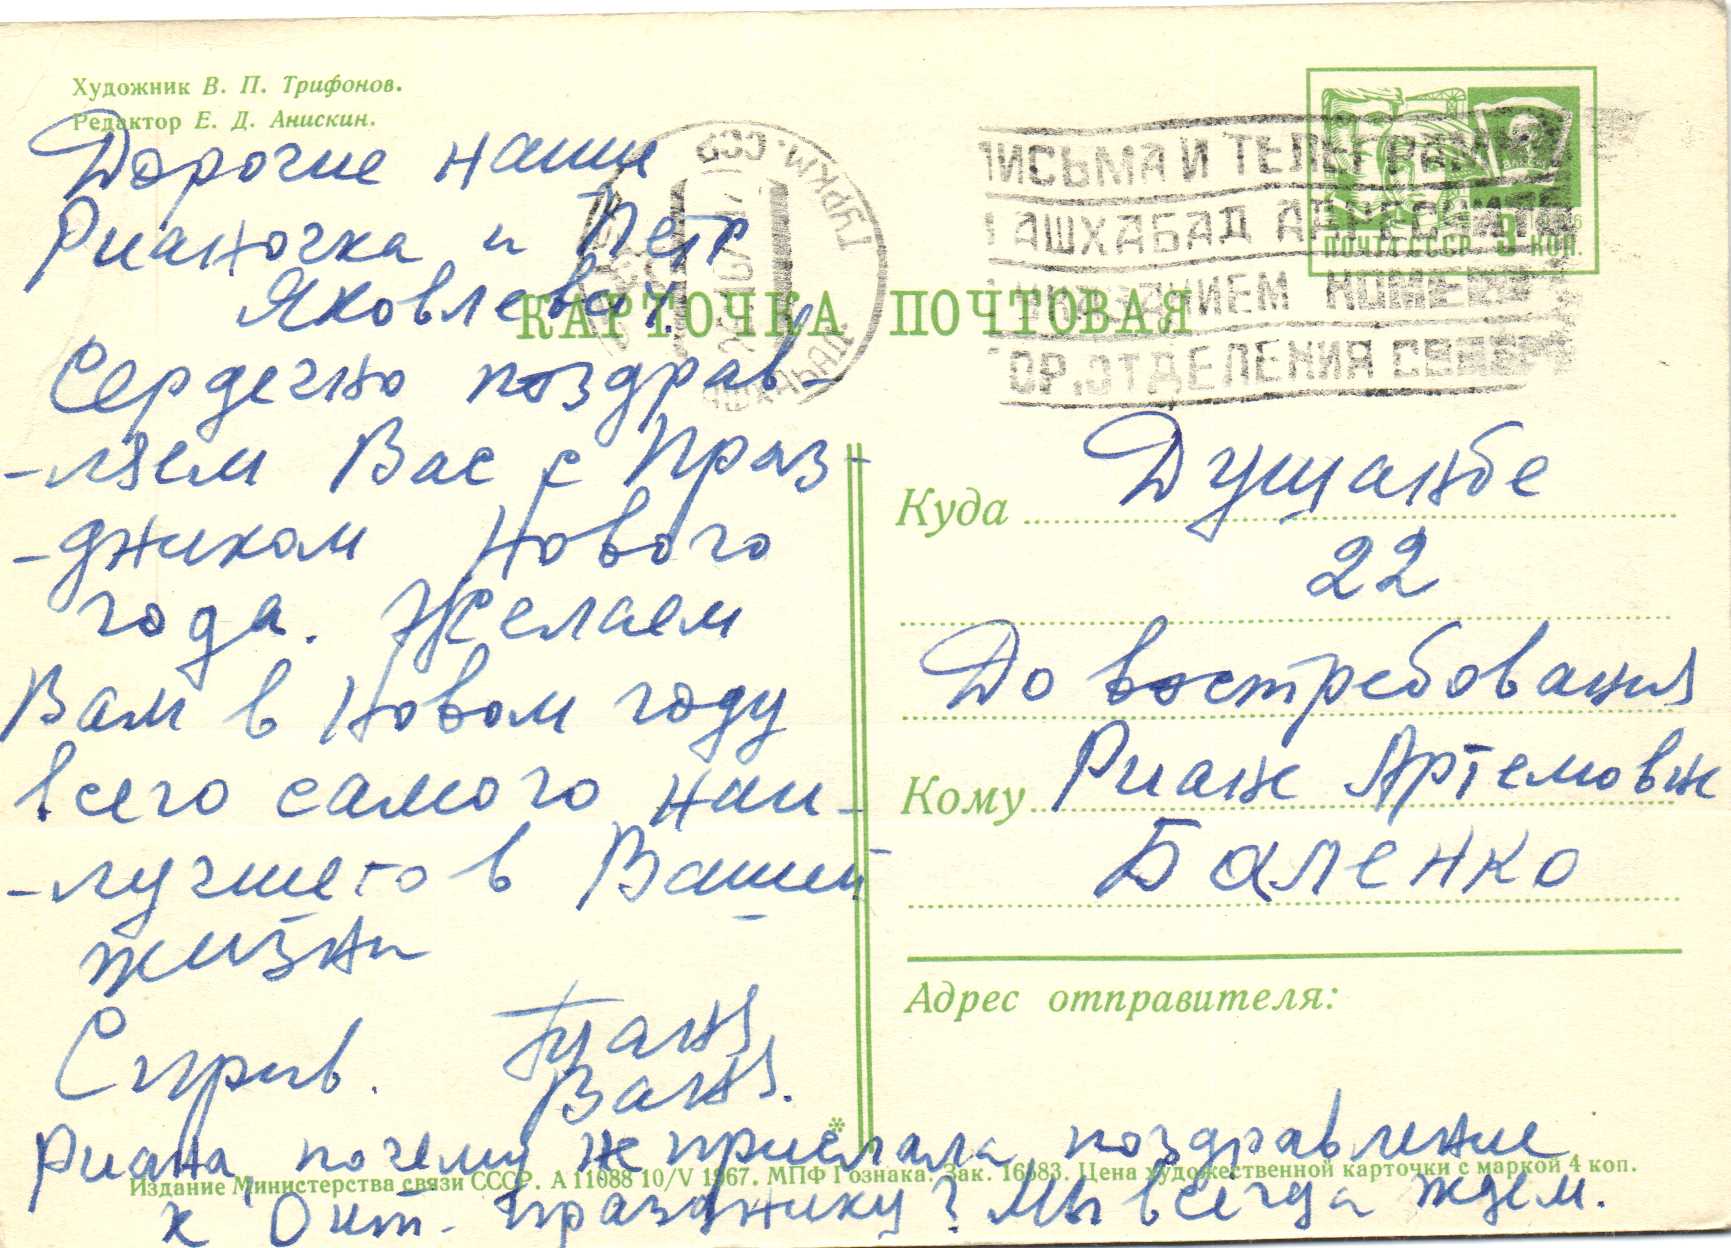 Художник В. П. Трифонов.
Редактор Е. Д. Анискин.
Дорогие наши
Рианочка и Петр
Яковлевич.
Сердечно поздрав-
-ляем Вас с Праз-
-дником Нового
года. Желаем
Вам в Новом году
всего самого наи-
-лучшего в Вашей
жизни
С прив.
Ваня.
Риана, почему не прислала поздравление
к Окт. празднику? Мы всегда ждем.
КАРТОЧКА ПОЧТОВАЯ
ТУРКМ. ССР
АШХАБАД
ПИСЬМА И ТЕЛЕГРАММЫ
АШХАБАД АДРЕСУЙТЕ
УКАЗАНИЕМ НОМЕРА
ГОР. ОТДЕЛЕНИЯ СВЯЗИ
ПОЧТА СССР 3 КОП.
Куда Душанбе
22
До востребования
Кому Риане Артемовне
Баленко
Адрес отправителя:
Издание Министерства связи СССР. А 11088 10/V 1967. МПФ Гознака. Зак. 16883. Цена художественной карточки с маркой 4 коп.